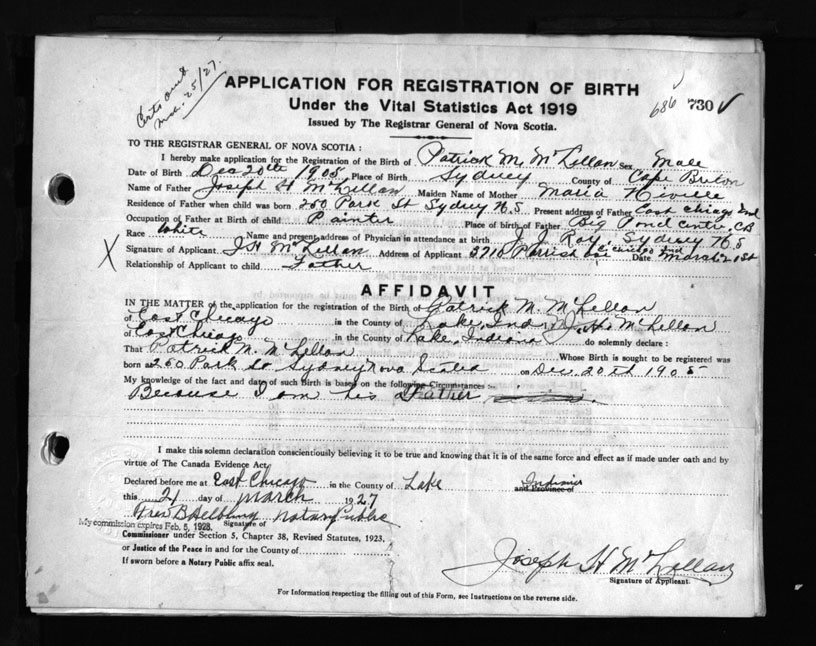 Certs and
Mar. 25/27.
APPLICATION FOR REGISTRATION OF BIRTH
Under the Vital Statistics Act 1919
Issued by The Registrar General of Nova Scotia.
686 730
TO THE REGISTRAR GENERAL OF NOVA SCOTIA :
I hereby make application for the Registration of the Birth of Patrick M. McLellan Sex Male
Date of Birth Dec 20th 1905 Place of Birth Sydney County of Cape Breton
Name of Father Joseph H McLellan Maiden Name of Mother Maria
Residence of Father when child was born 260 Park St Sydney N.S Present address of Father East Chicago Ind
Occupation of Father at Birth of child Painter Place of birth of Father Big Pond Centre, CB
Race White Name and present address of Physician in attendance at birth Roy, Sydney N.S
X Signature of Applicant J H McLellan Address of Applicant 3710 Parrish Ave Date March 21st
Relationship of Applicant to child Father
AFFIDAVIT
IN THE MATTER of the application for the registration of the Birth of Patrick M. McLellan
of East Chicago in the County of Lake, Ind I J. H. McLellan
of East Chicago in the County of Lake, Indiana do solemnly declare :
That Patrick M. McLellan Whose Birth is sought to be registered was
born at 260 Park St Sydney Nova Scotia on Dec. 20th 1905
My knowledge of the fact and date of such Birth is based on the following Circumstances :
Because I am his Father
I make this solemn declaration conscientiously believing it to be true and knowing that it is of the same force and effect as if made under oath and by
virtue of The Canada Evidence Act.
Declared before me at East Chicago in the County of Lake and Province of Indiana
this 21 day of March 1927
Notary Public
My commission expires Feb. 5, 1928. Signature of
Commissioner under Section 5, Chapter 38, Revised Statutes, 1923,
or Justice of the Peace in and for the County of
If sworn before a Notary Public affix seal.
Joseph H McLellan
Signature of Applicant.
For Information respecting the filling out of this Form, see Instructions on the reverse side.